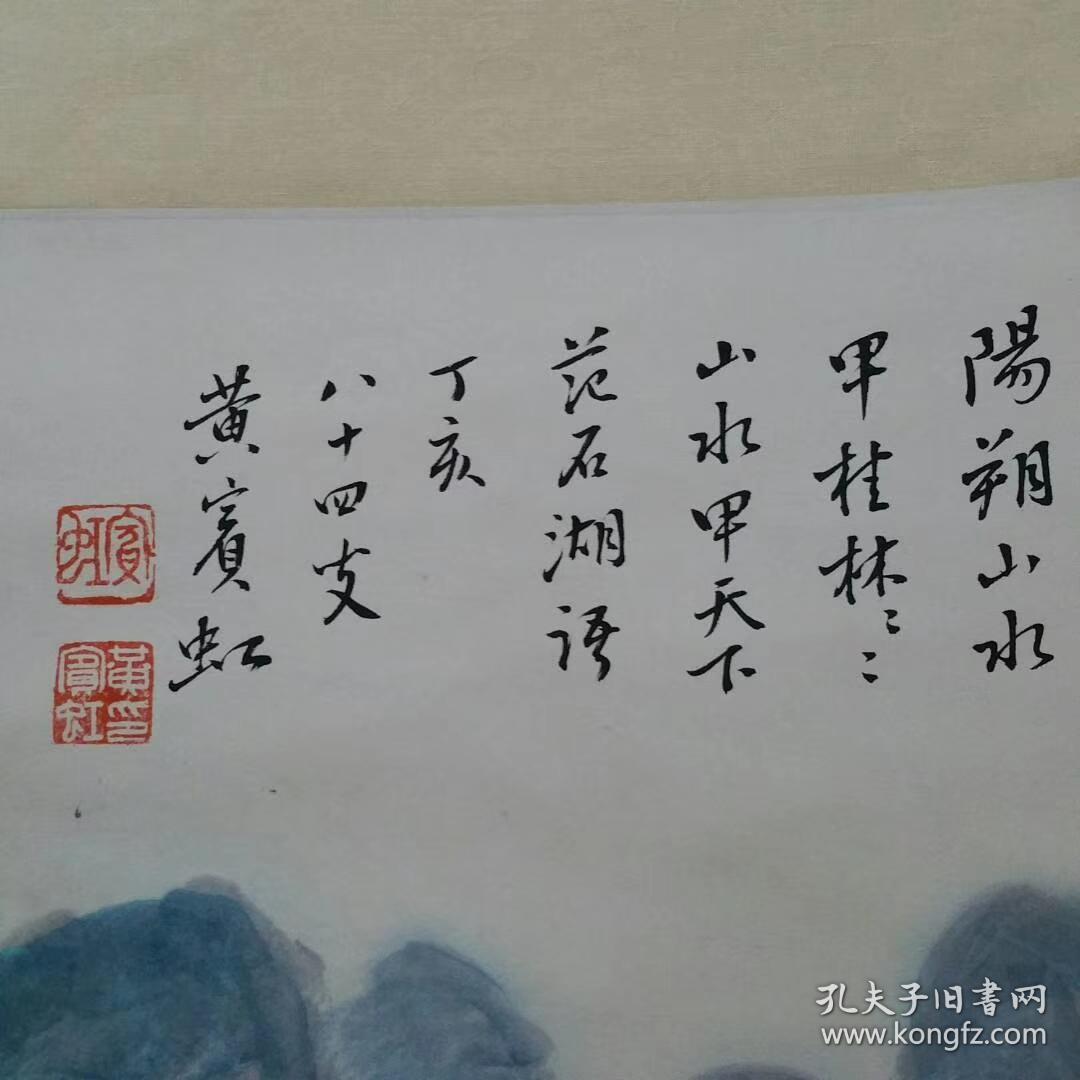 陽朔山水
甲桂林〻〻
山水甲天下
范石湖語
丁亥
八十四支
黄賓虹
賓虹
黄賓虹印
孔夫子旧書网
www.kongfz.com